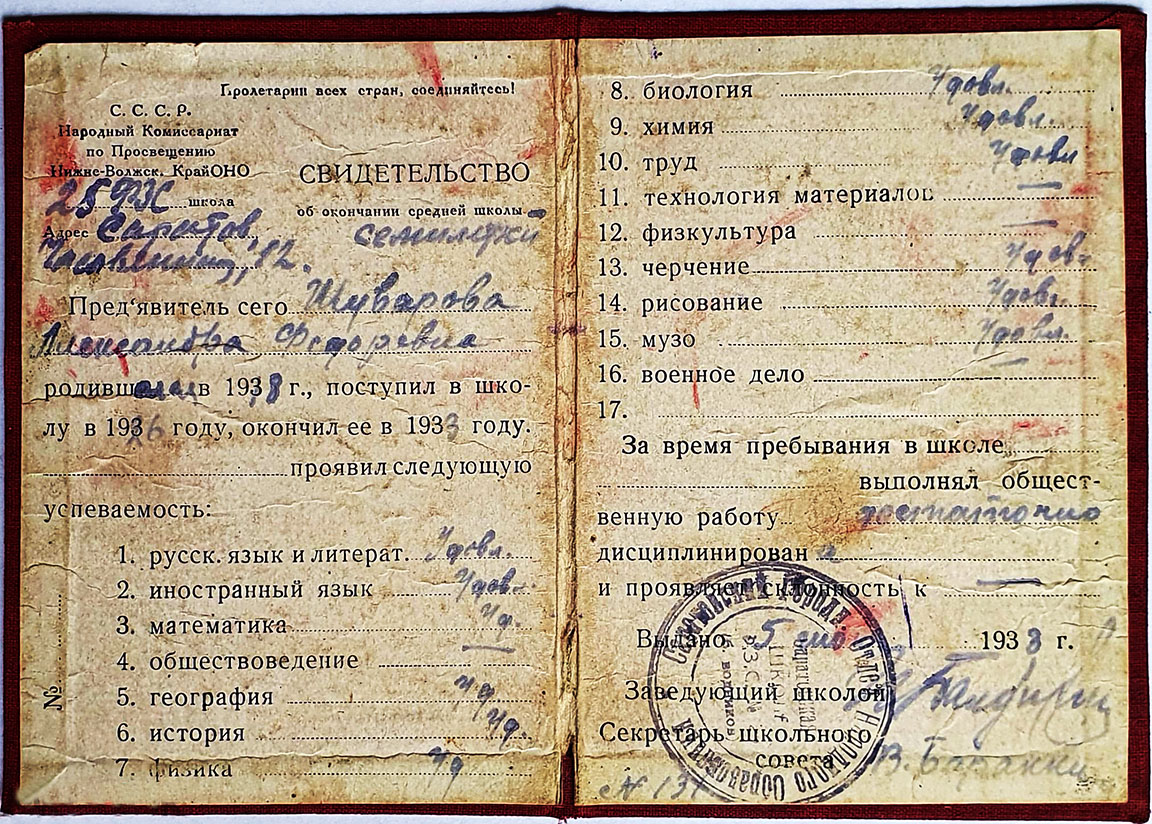 Пролетарии всех стран, соединяйтесь!
С. С. С. Р.
Народный Комиссариат
по Просвещению
Нижне-Волжск. КрайОНО
25 ФЖ школа
Адрес Саратов,
12.
СВИДЕТЕЛЬСТВО
об окончании средней школы
семилетки
Пред'явитель сего Шуварова
Александра Федоровна
родивш в 1918 г., поступил в шко-
лу в 1926 году, окончил ее в 1933 году.
проявил следующую
успеваемость:
1. русск. язык и литерат. Удовл.
2. иностранный язык Удов.
3. математика Уд.
4. обществоведение —
5. география уд
6. история уд.
7. физика уд
№
8. биология Удовл.
9. химия Удовл.
10. труд Удовл
11. технология материалов —
12. физкультура —
13. черчение Удов.
14. рисование Удов.
15. музо Удовл.
16. военное дело —
17.
За время пребывания в школе
выполнял общест-
венную работу достаточно
дисциплинирован а
и проявляет склонность к —
Выдано 5 1933 г.
Заведующий школой
Секретарь школьного
совета
№ 137
Городск. Отдел Народного Образования